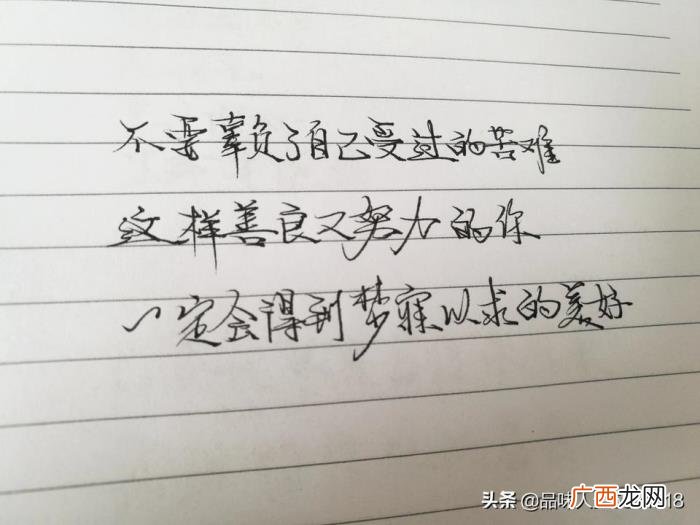 不要辜负了自己受过的苦难
这样善良又努力的你
一定会得到梦寐以求的美好
头条 @品味人
18
广西龙网